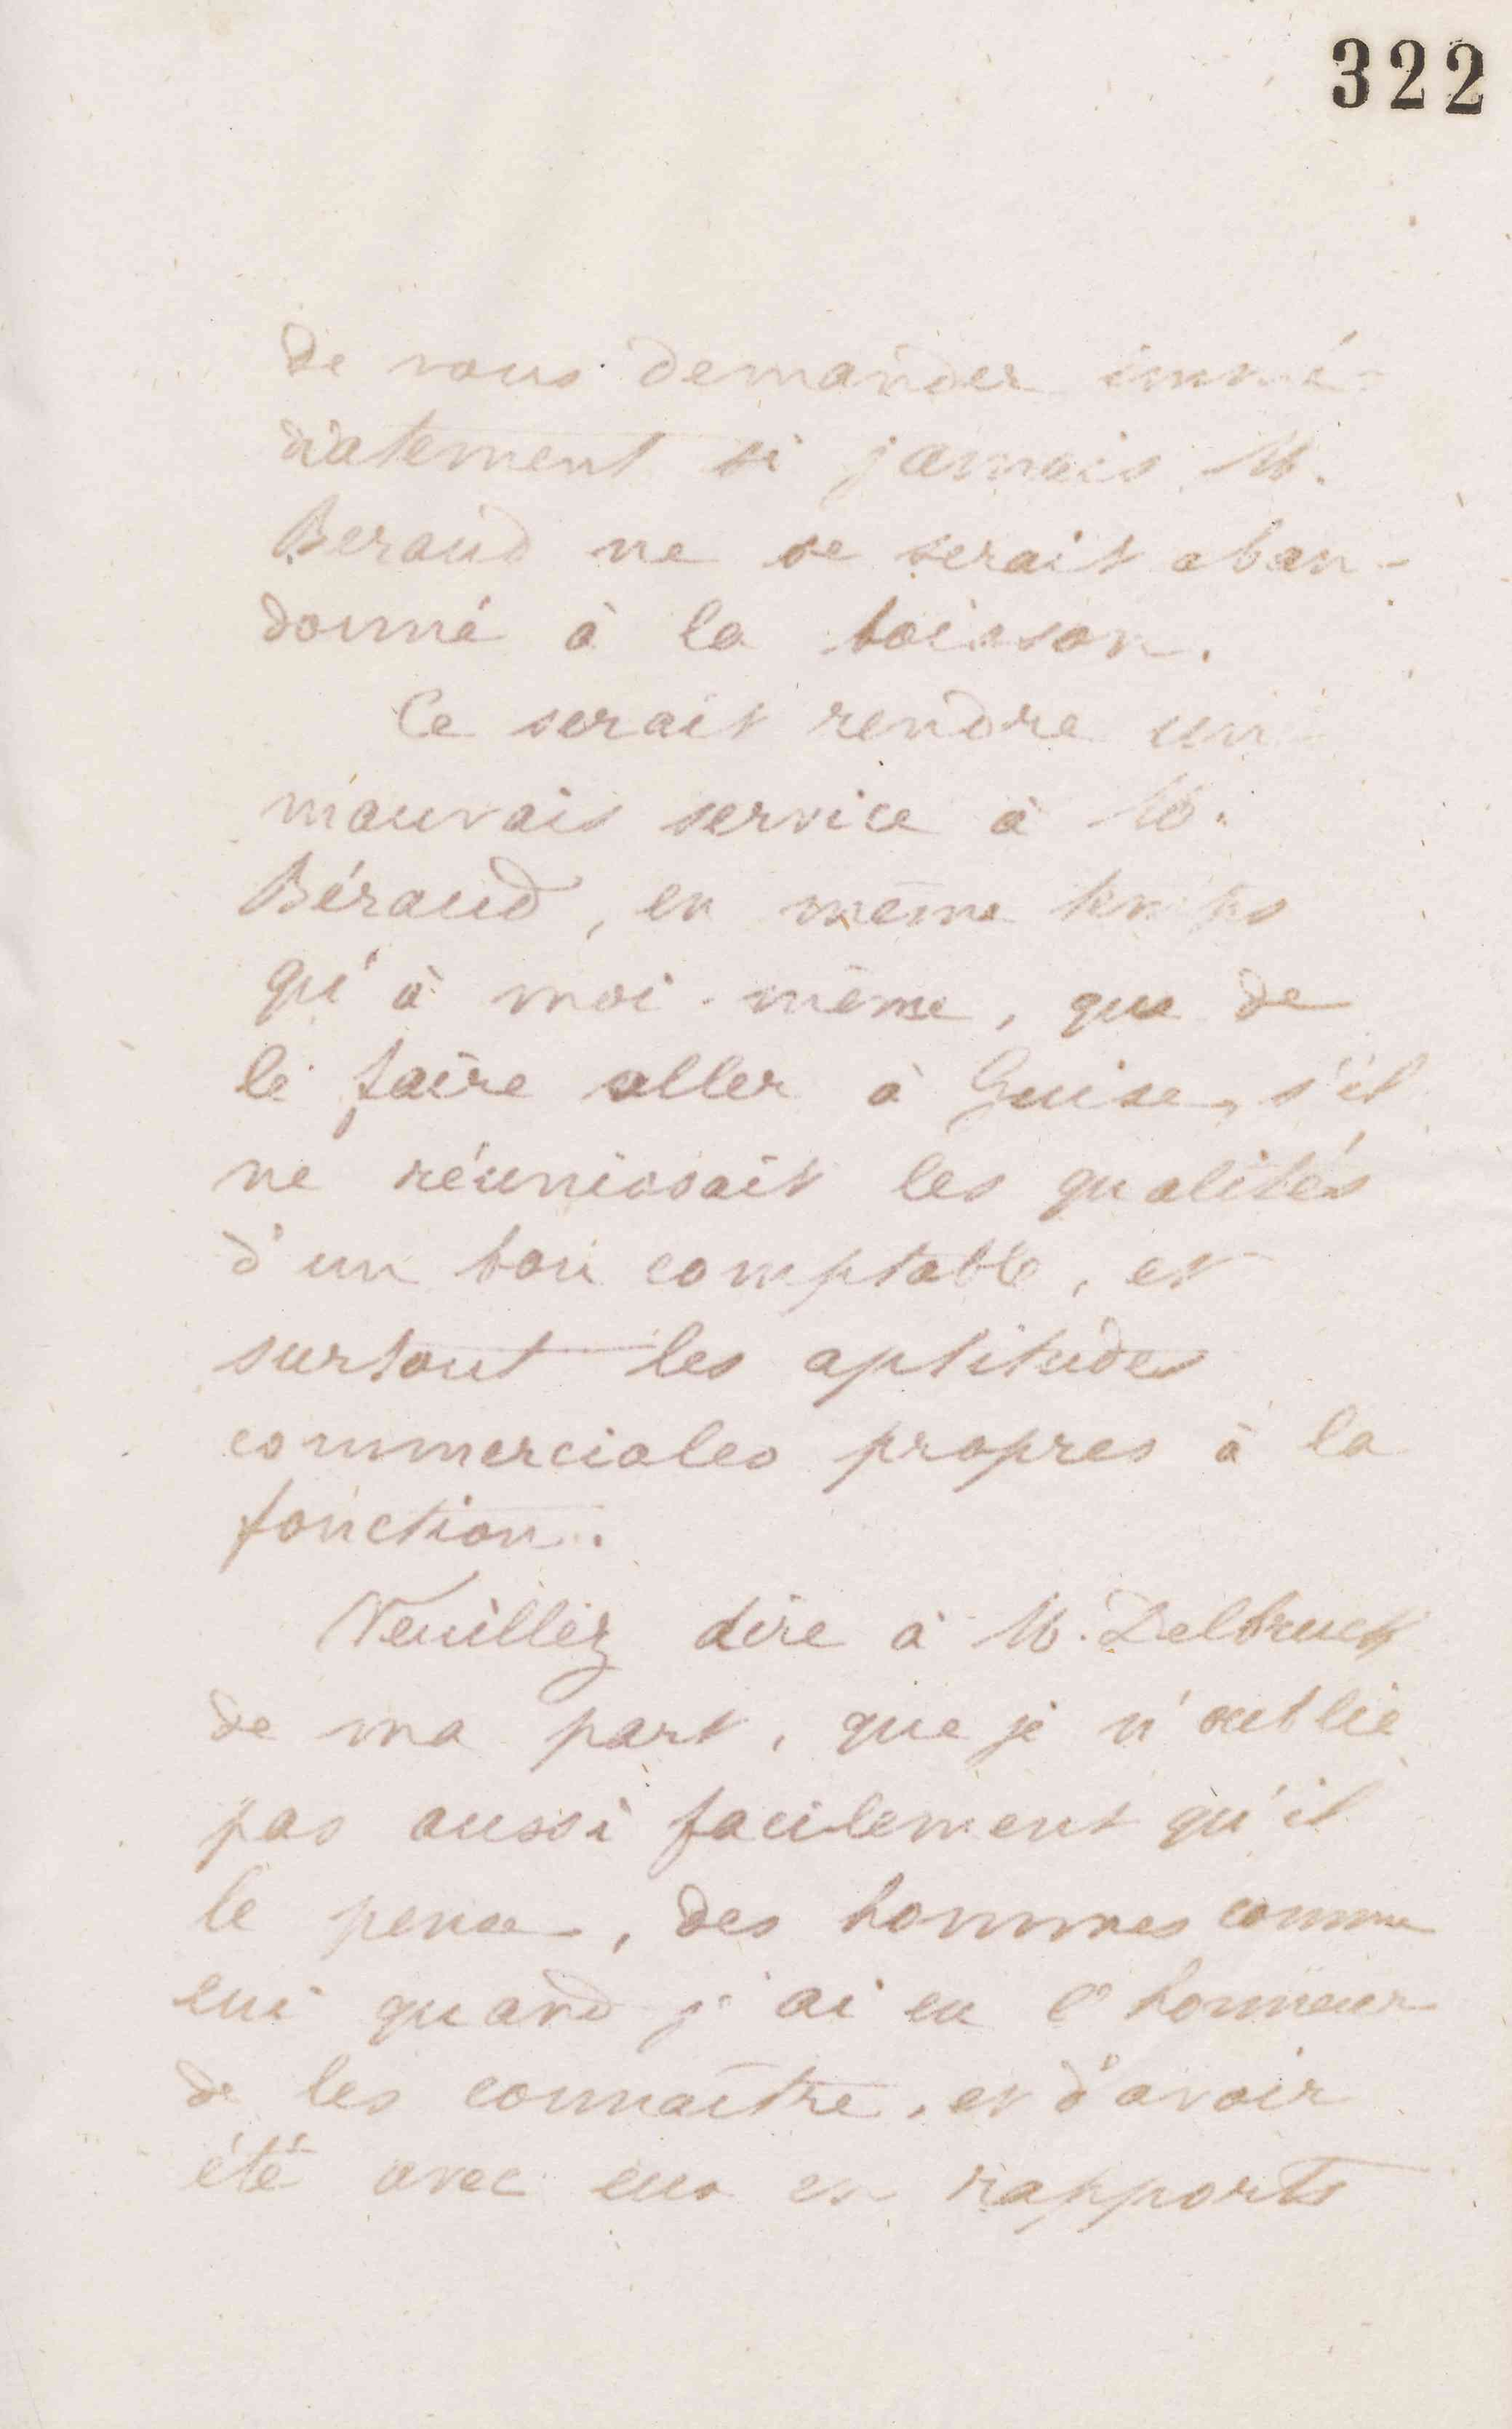 322
de vous demander immé-
diatement si jamais M.
Beraud ne se serait aban-
donné à la boisson.
Ce serait rendre un
mauvais service à M.
Béraud, en même temps
qu'à moi-même, que de
le faire aller à Guise, s'il
ne réunissait les qualités
d'un bon comptable, et
surtout les aptitudes
commerciales propres à la
fonction.
Veuillez dire à M. Delbruck
de ma part, que je n'oublie
pas aussi facilement qu'il
le pense, des hommes comme
lui quand j'ai eu l'honneur
de les connaître, et d'avoir
été avec eux en rapports